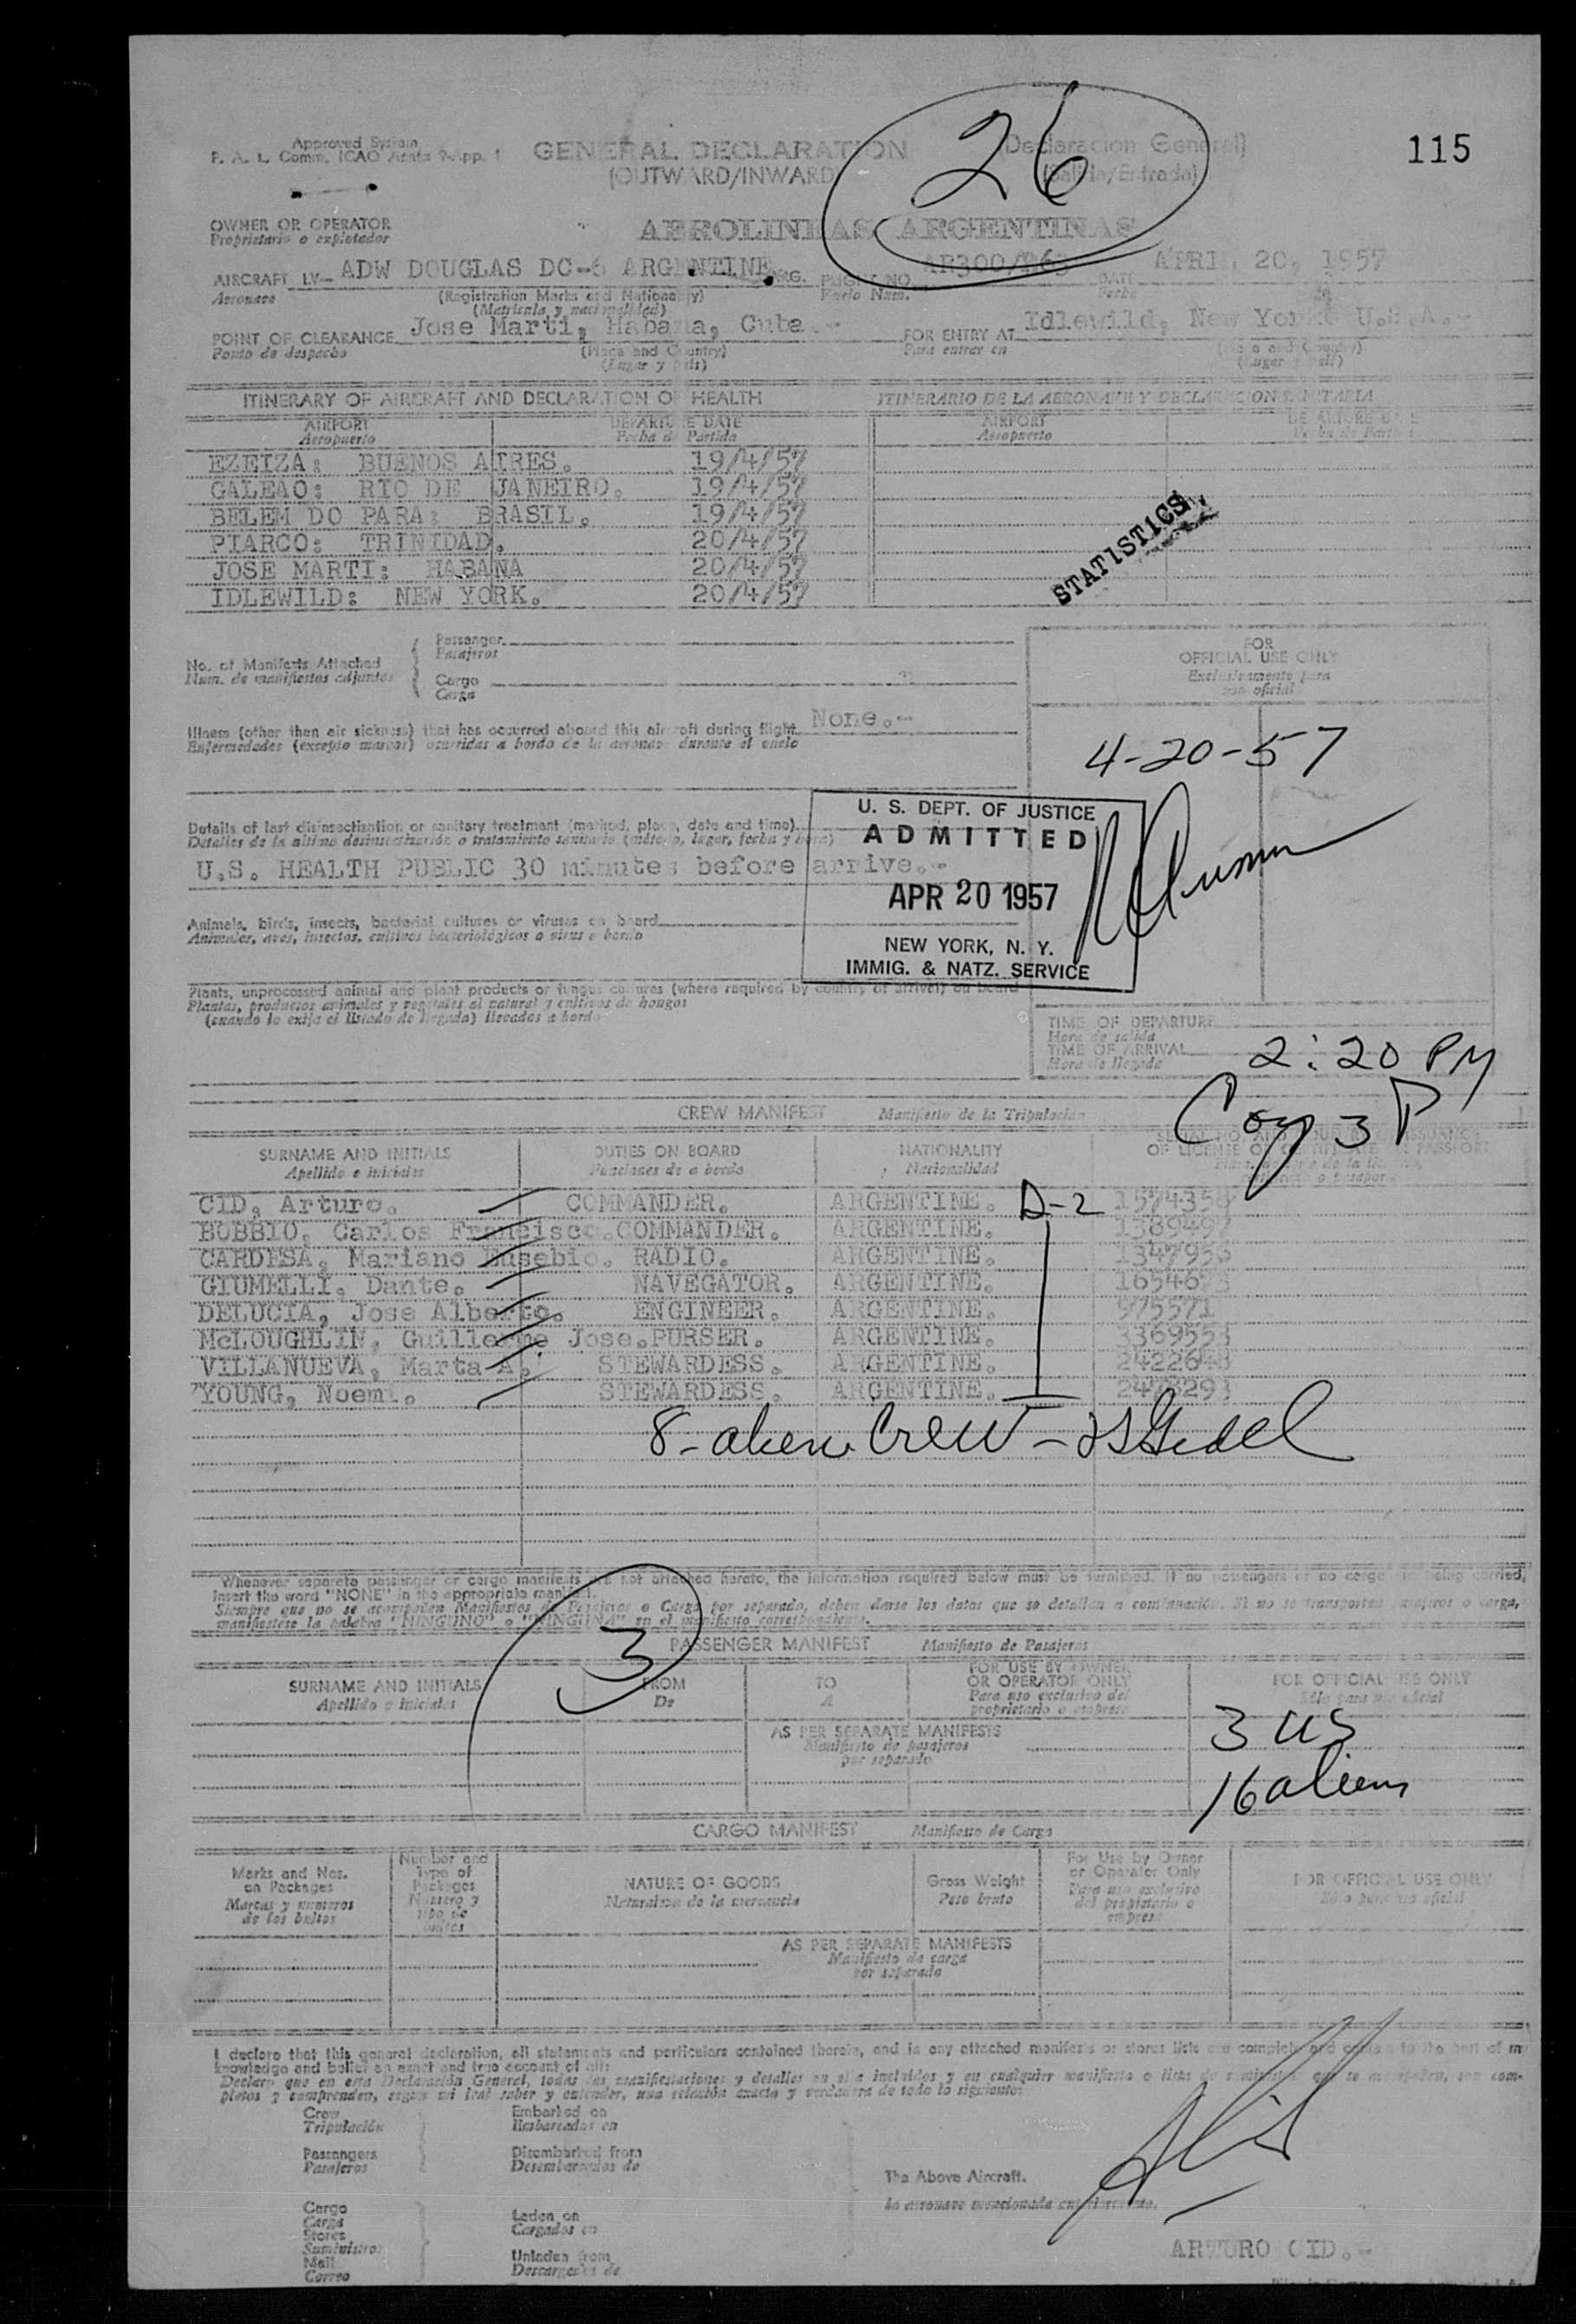 115
26
Approved System
F. A. L. Comm. ICAO Annex 9-App. 1
GENERAL DECLARATION (Declaracion General)
(OUTWARD/INWARD) (Salida/Entrada)
OWNER OR OPERATOR
Proprietario o explotador
AEROLINEAS ARGENTINAS
AIRCRAFT LV- ADW DOUGLAS DC-6 ARGENTINE ARG. FLIGHT NO. DATE APRIL 20, 1957
Aeronave (Registration Marks and Nationality) Vuelo Num. Fecha
(Matricula y nacionalidad)
POINT OF CLEARANCE Jose Marti, Habana, Cuba.- FOR ENTRY AT Idlewild, New York U.S.A.-
Punto de despacho (Place and Country) Para entrar en (Place and Country)
(Lugar y pais) (Lugar y pais)
ITINERARY OF AIRCRAFT AND DECLARATION OF HEALTH ITINERARIO DE LA AERONAVE Y DECLARACION SANITARIA
AIRPORT DEPARTURE DATE AIRPORT DEPARTURE DATE
Aeropuerto Fecha de Partida Aeropuerto Fecha de Partida
EZEIZA: BUENOS AIRES. 19/4/57
GALEAO: RIO DE JANEIRO. 19/4/57
BELEM DO PARA: BRASIL. 19/4/57
PIARCO: TRINIDAD. 20/4/57
JOSE MARTI: HABANA 20/4/57
IDLEWILD: NEW YORK. 20/4/57
STATISTICS
No. of Manifests Attached
Num. de manifiestos adjuntos
Passenger
Pasajeros
Cargo
Carga
FOR
OFFICIAL USE ONLY
Exclusivamente para
uso oficial
Illness (other than air sickness) that has occurred aboard this aircraft during flight None.-
Enfermedades (excepto mareos) ocurridas a bordo de la aeronave durante el vuelo
4-20-57
Details of last disinsectisation or sanitary treatment (method, place, date and time)
Detalles de la ultima desinsectización o tratamiento sanitario (método, lugar, fecha y hora)
U.S. HEALTH PUBLIC 30 minutes before arrive.-
U. S. DEPT. OF JUSTICE
ADMITTED
APR 20 1957
NEW YORK, N. Y.
IMMIG. & NATZ. SERVICE
Animals, birds, insects, bacterial cultures or viruses on board
Animales, aves, insectos, cultivos bacteriológicos o virus a bordo
Plants, unprocessed animal and plant products or fungus cultures (where required by country of arrival) on board
Plantas, productos animales y vegetales al natural y cultivos de hongos
(cuando lo exija el Estado de llegada) llevados a bordo
TIME OF DEPARTURE
Hora de salida
TIME OF ARRIVAL 2:20 PM
Hora de llegada
CREW MANIFEST Manifiesto de la Tripulacion
SURNAME AND INITIALS DUTIES ON BOARD NATIONALITY
Apellido e iniciales Funciones de a bordo Nacionalidad
CID, Arturo. COMMANDER. ARGENTINE. D-2
BOBBIO, Carlos Francisco. COMMANDER. ARGENTINE.
CARDESA, Mariano Eusebio. RADIO. ARGENTINE.
GIUMELLI, Dante. NAVEGATOR. ARGENTINE.
DELUCIA, Jose Alberto. ENGINEER. ARGENTINE. 975571
McLOUGHLIN, Guillermo Jose. PURSER. ARGENTINE. 3369553
VILLANUEVA, Marta A. STEWARDESS. ARGENTINE.
YOUNG, Noemi. STEWARDESS. ARGENTINE.
8- alien Crew -
Whenever separate passenger or cargo manifests are not attached hereto, the information required below must be furnished. If no passengers or no cargo is being carried,
insert the word "NONE" in the appropriate manifest.
Siempre que no se acompañen Manifiestos de Pasajeros o Carga por separado, deben darse los datos que se detallan a continuación. Si no se transportan pasajeros o carga,
manifiestese la palabra "NINGUNO" o "NINGUNA" en el manifiesto correspondiente.
3
PASSENGER MANIFEST Manifiesto de Pasajeros
SURNAME AND INITIALS FROM TO FOR USE BY OWNER OR OPERATOR ONLY FOR OFFICIAL USE ONLY
Apellido e iniciales De A Para uso exclusivo del propietario o empresa Sólo para uso oficial
AS PER SEPARATE MANIFESTS
Manifiesto de pasajeros
por separado
3 US
16 aliens
CARGO MANIFEST Manifiesto de Carga
Marks and Nos. on Packages Number and Type of Packages NATURE OF GOODS Gross Weight For Use by Owner or Operator Only FOR OFFICIAL USE ONLY
Marcas y numeros de los bultos Número y tipo de bultos Naturaleza de la mercancia Peso bruto Para uso exclusivo del propietario o empresa Sólo para uso oficial
AS PER SEPARATE MANIFESTS
Manifiesto de carga
por separado
I declare that this general declaration, all statements and particulars contained therein, and in any attached manifests or stores lists are complete and correct to the best of my
knowledge and belief an exact and true account of all:
Crew Embarked on
Tripulación Embarcados en
Passengers Disembarked from
Pasajeros Desembarcados de
The Above Aircraft.
La aeronave mencionada anteriormente.
Cargo Laden on
Carga Cargados en
Stores
Suministros
Mail Unladen from
Correo Descargados de
ARTURO CID.-